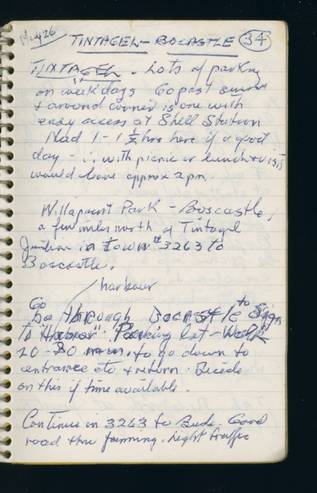 May 26
TINTAGEL - BOCASTLE 34
TINTAGEL. Lots of parking
on weekdays Go past
& around corner is one with
easy access at Shell Station
Need 1 - 1½ hrs here if a good
day - ∴ with picnic or lunch & visit
would leave approx 2pm.
Willapark Park - Boscastle,
a few miles north of Tintagel
Junction in town #3263 to
Boscastle.
harbour
Go through Bocastle to sign
to "Harbor" Parking lot - Walk
20 - 30 min. to go down to
entrance etc & return. Decide
on this if time available.
Continue on 3263 to Bude. Good
road thru farming. Light traffic